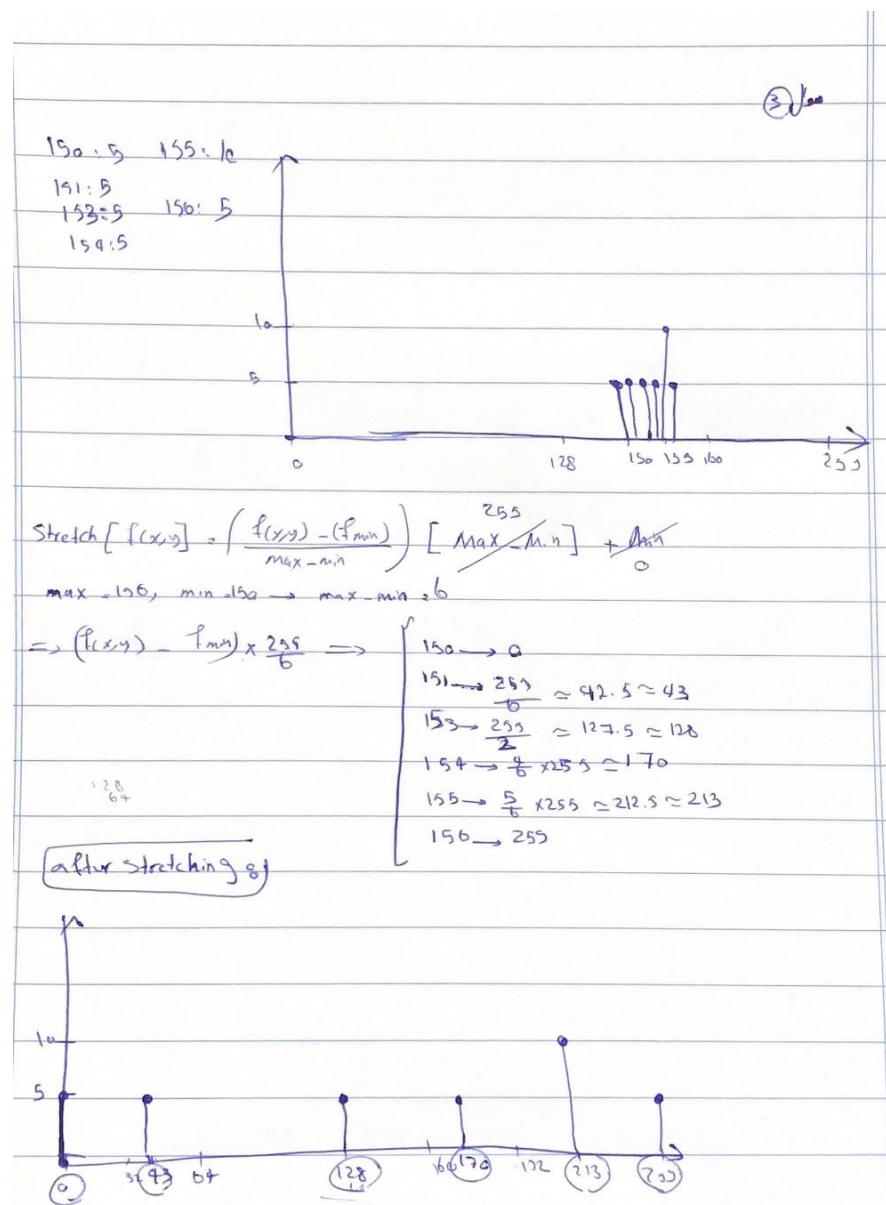 سوال ③
150 : 5 155 : 10
151 : 5
153 : 5 156 : 5
154 : 5
10
5
0 128 150 155 160 255
255
Stretch [ f(x,y] = ( f(x,y) - (fmin) / max - min ) [ Max - Min ] + Min
0
max = 156, min = 150 → max - min = 6
=> (f(x,y) - fmin) × 255/6 => 150 → 0
151 → 255/6 ≃ 42.5 ≃ 43
153 → 255/2 ≃ 127.5 ≃ 128
154 → 4/6 × 255 ≃ 170
128
64
155 → 5/6 × 255 ≃ 212.5 ≃ 213
156 → 255
after stretching :
10
5
0 32 43 64 128 160 170 192 213 255